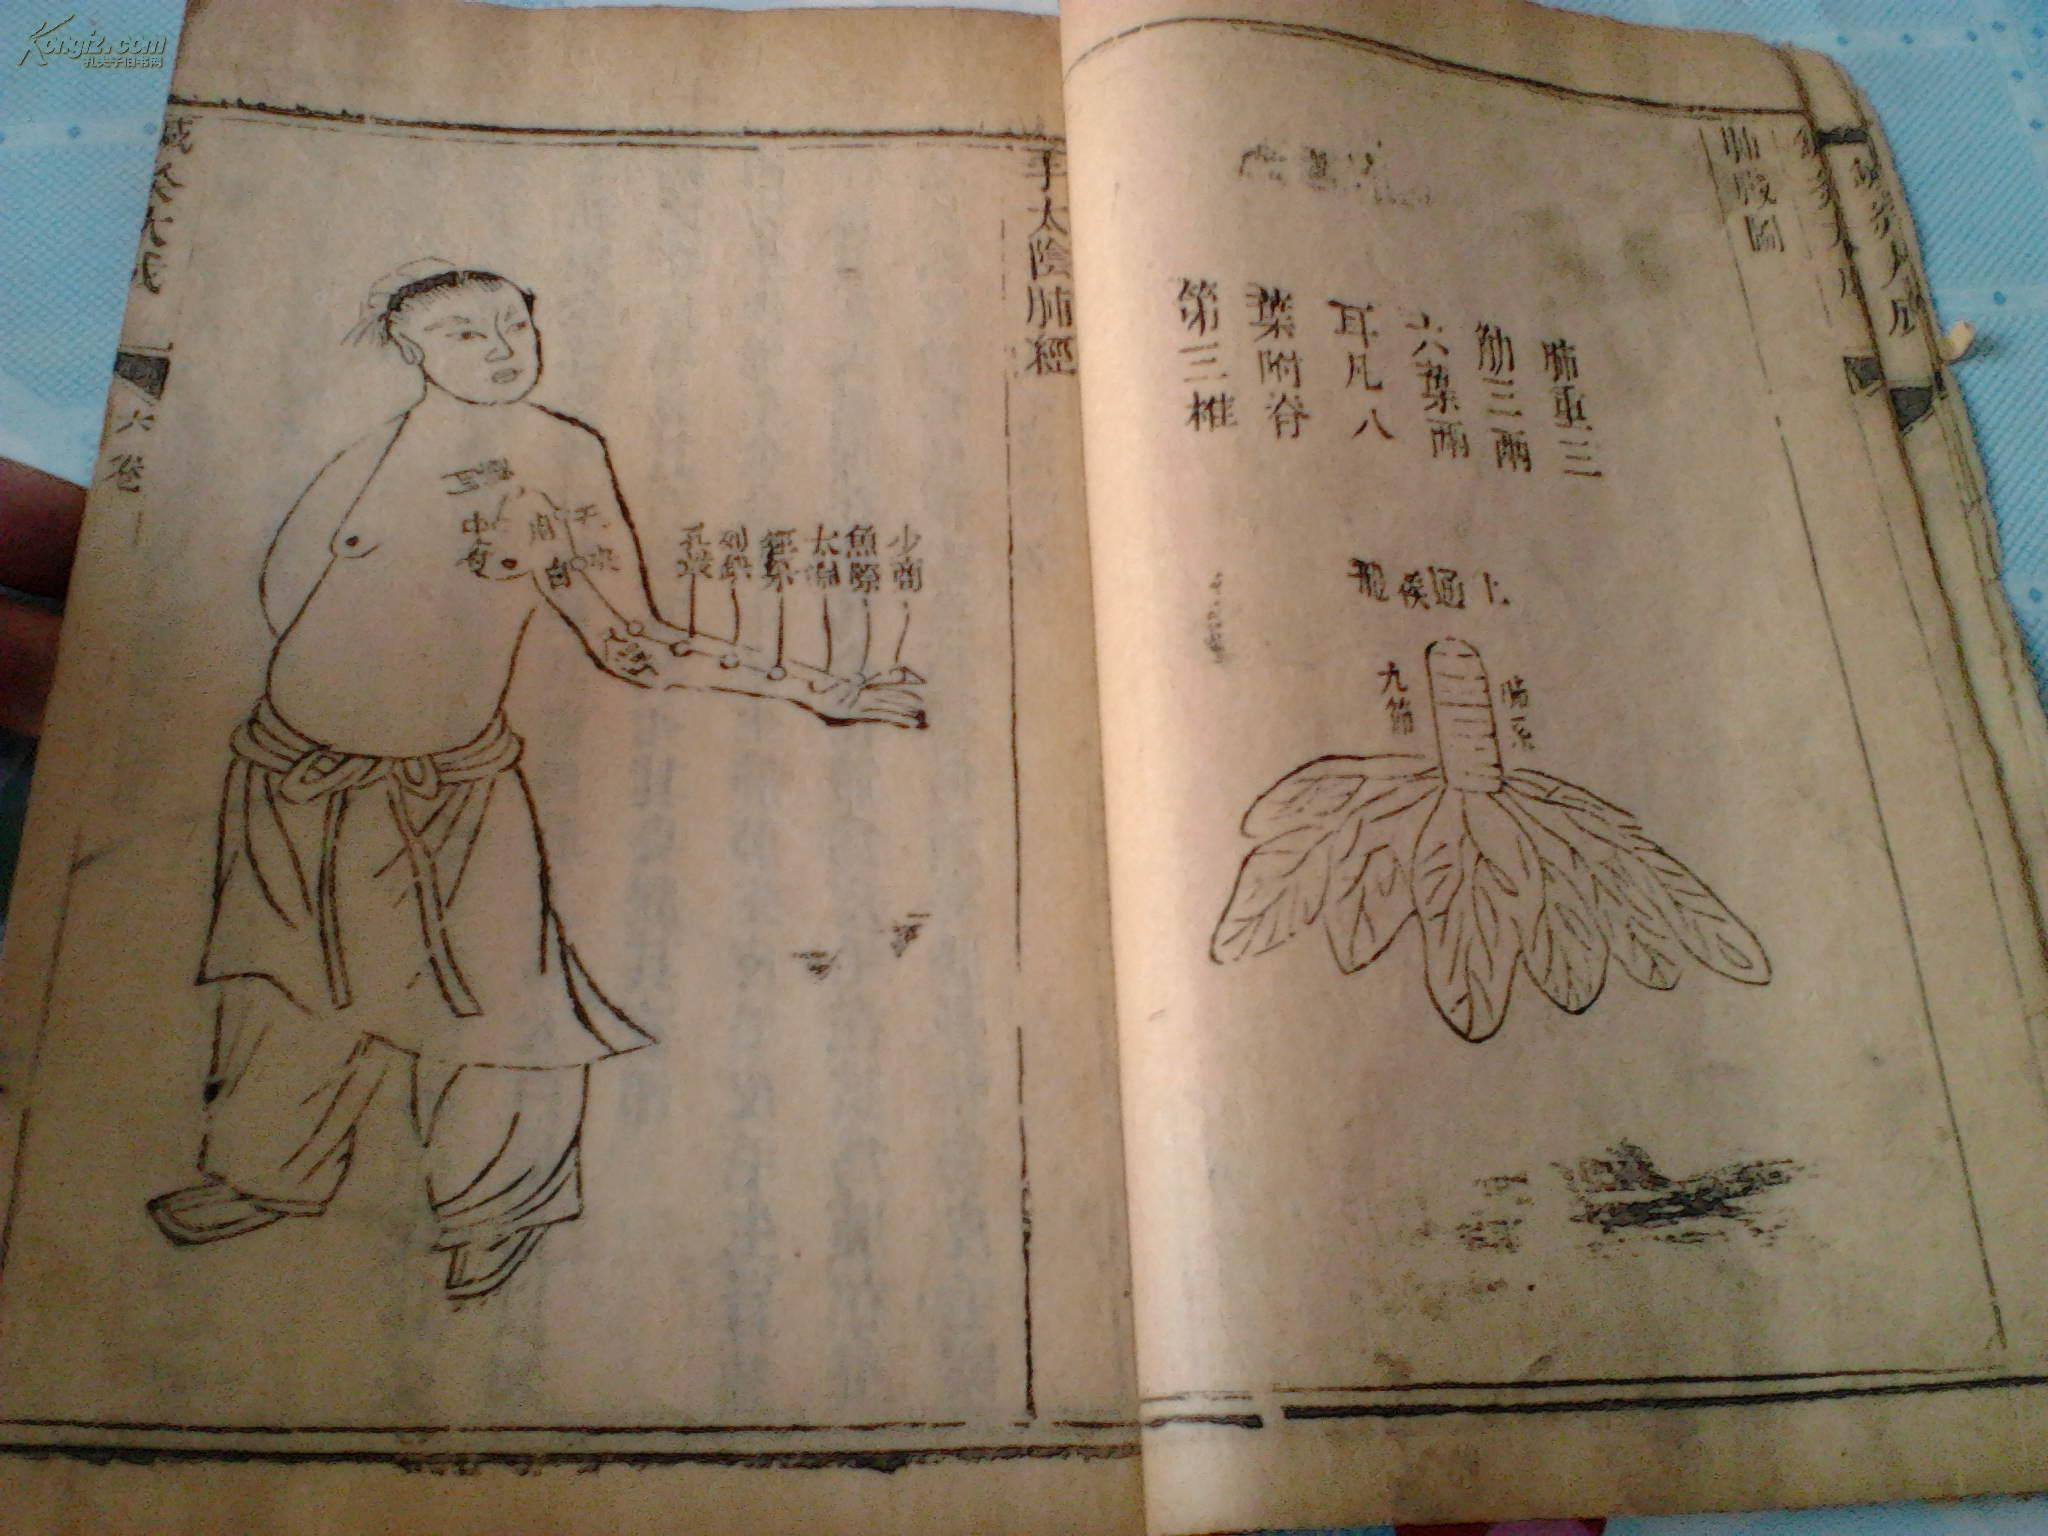 Kongfz.com
孔夫子旧书网
肺臟圖
肺重三
觔三兩
六葉兩
耳凡八
葉附脊
第三椎
上通喉嚨
肺系
九節
手太陰肺經
少商
魚際
太淵
經渠
列缺
孔最
天
俠白
中府
鍼灸大成
六卷